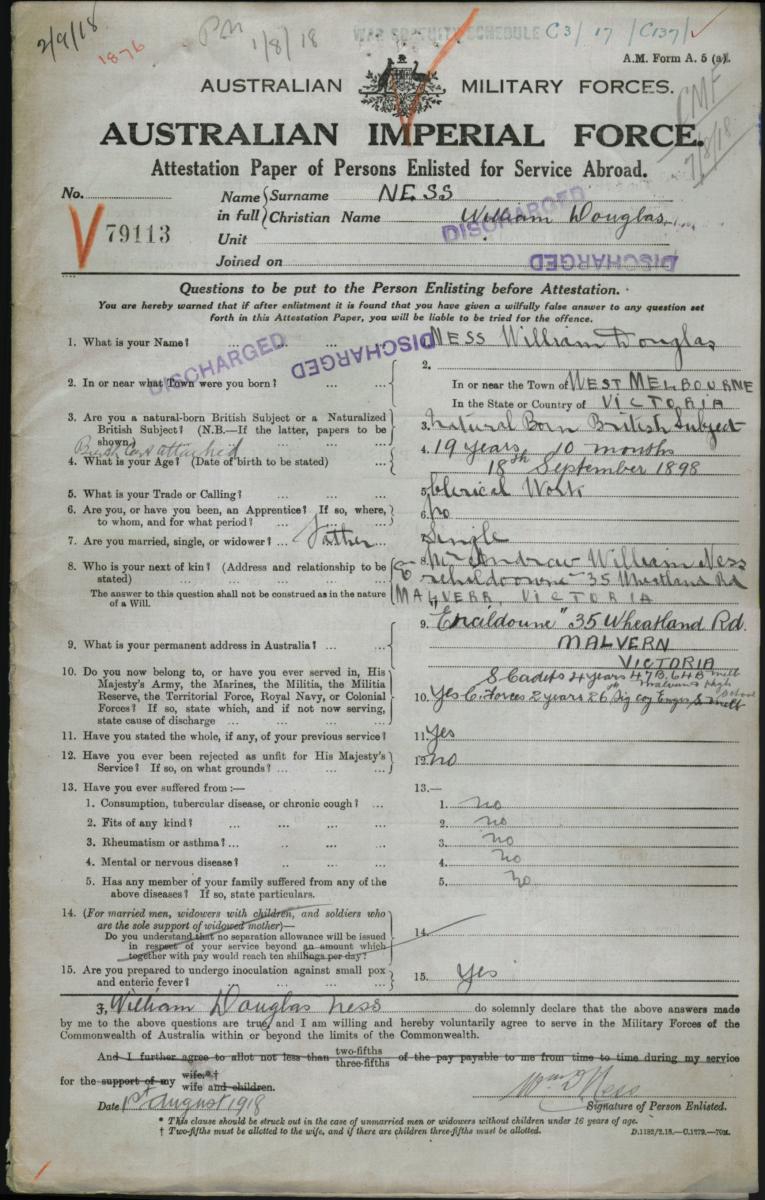 2/9/18
1876
PM
1/8/18
WAR GRATUITY SCHEDULE
C3/17/C137/
A.M. Form A. 5 (a).
AUSTRALIAN MILITARY FORCES.
CMF
7/8/18
AUSTRALIAN IMPERIAL FORCE.
Attestation Paper of Persons Enlisted for Service Abroad.
No.
Name in full
Surname NESS
Christian Name William Douglas
79113
Unit
DISCHARGED
Joined on
DISCHARGED
Questions to be put to the Person Enlisting before Attestation.
You are hereby warned that if after enlistment it is found that you have given a wilfully false answer to any question set
forth in this Attestation Paper, you will be liable to be tried for the offence.
1. What is your Name? ... ... ... 1. NESS William Douglas
DISCHARGED
DISCHARGED
2. In or near what Town were you born? ... ...
2.
In or near the Town of WEST MELBOURNE
In the State or Country of VICTORIA
3. Are you a natural-born British Subject or a Naturalized
British Subject? (N.B.—If the latter, papers to be
shown)
3. Natural Born British Subject
Birth Cert attached
4. What is your Age? (Date of birth to be stated)
4. 19 years 10 months
18th September 1898
5. What is your Trade or Calling? ... ... ... 5. Clerical Work
6. Are you, or have you been, an Apprentice? If so, where,
to whom, and for what period? ... ... ...
6. No
7. Are you married, single, or widower? ... Single
Father
8. Who is your next of kin? (Address and relationship to be
stated) ... ... ... ...
The answer to this question shall not be construed as in the nature
of a Will.
8. Mr Andrew William Ness
35 Wheatland Rd
MALVERN, VICTORIA
9. What is your permanent address in Australia? ... ...
9. "Ercildoune" 35 Wheatland Rd.
MALVERN
VICTORIA
10. Do you now belong to, or have you ever served in, His
Majesty's Army, the Marines, the Militia, the Militia
Reserve, the Territorial Force, Royal Navy, or Colonial
Forces? If so, state which, and if not now serving,
state cause of discharge ... ... ...
S Cadets 4 years 47B, 64B
Malvern High School
10. Yes C. Forces 2 years 26 Sig coy Engrs
11. Have you stated the whole, if any, of your previous service? 11. Yes
12. Have you ever been rejected as unfit for His Majesty's
Service? If so, on what grounds? ... ... ...
12. No
13. Have you ever suffered from :— 13.—
1. Consumption, tubercular disease, or chronic cough? ... 1. no
2. Fits of any kind? ... ... ... ... 2. no
3. Rheumatism or asthma? ... ... ... 3. no
4. Mental or nervous disease? ... ... 4. no
5. Has any member of your family suffered from any of the
above diseases? If so, state particulars.
5. no
14. (For married men, widowers with children, and soldiers who
are the sole support of widowed mother)—
Do you understand that no separation allowance will be issued
in respect of your service beyond an amount which
together with pay would reach ten shillings per day?
14.
15. Are you prepared to undergo inoculation against small pox
and enteric fever? ... ... ... ...
15. Yes
I, William Douglas Ness do solemnly declare that the above answers made
by me to the above questions are true, and I am willing and hereby voluntarily agree to serve in the Military Forces of the
Commonwealth of Australia within or beyond the limits of the Commonwealth.
And I further agree to allot not less than two-fifths three-fifths of the pay payable to me from time to time during my service
for the support of my wife.*† wife and children.
Wm D Ness
Date 1st August 1918
Signature of Person Enlisted.
* This clause should be struck out in the case of unmarried men or widowers without children under 16 years of age.
† Two-fifths must be allotted to the wife, and if there are children three-fifths must be allotted.
D.1182/2.18.—C.1279.—70M.